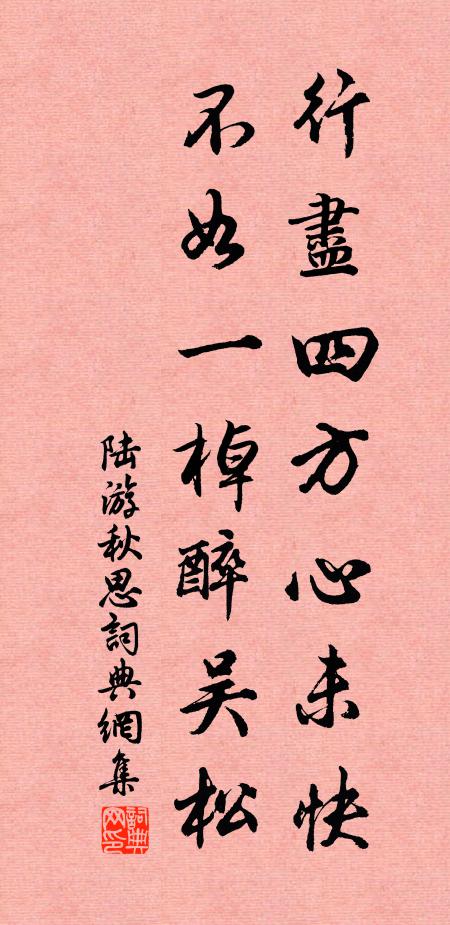 行盡四方心未快
不如一棹醉吴松
陆游秋思詞典網集
詞典网印